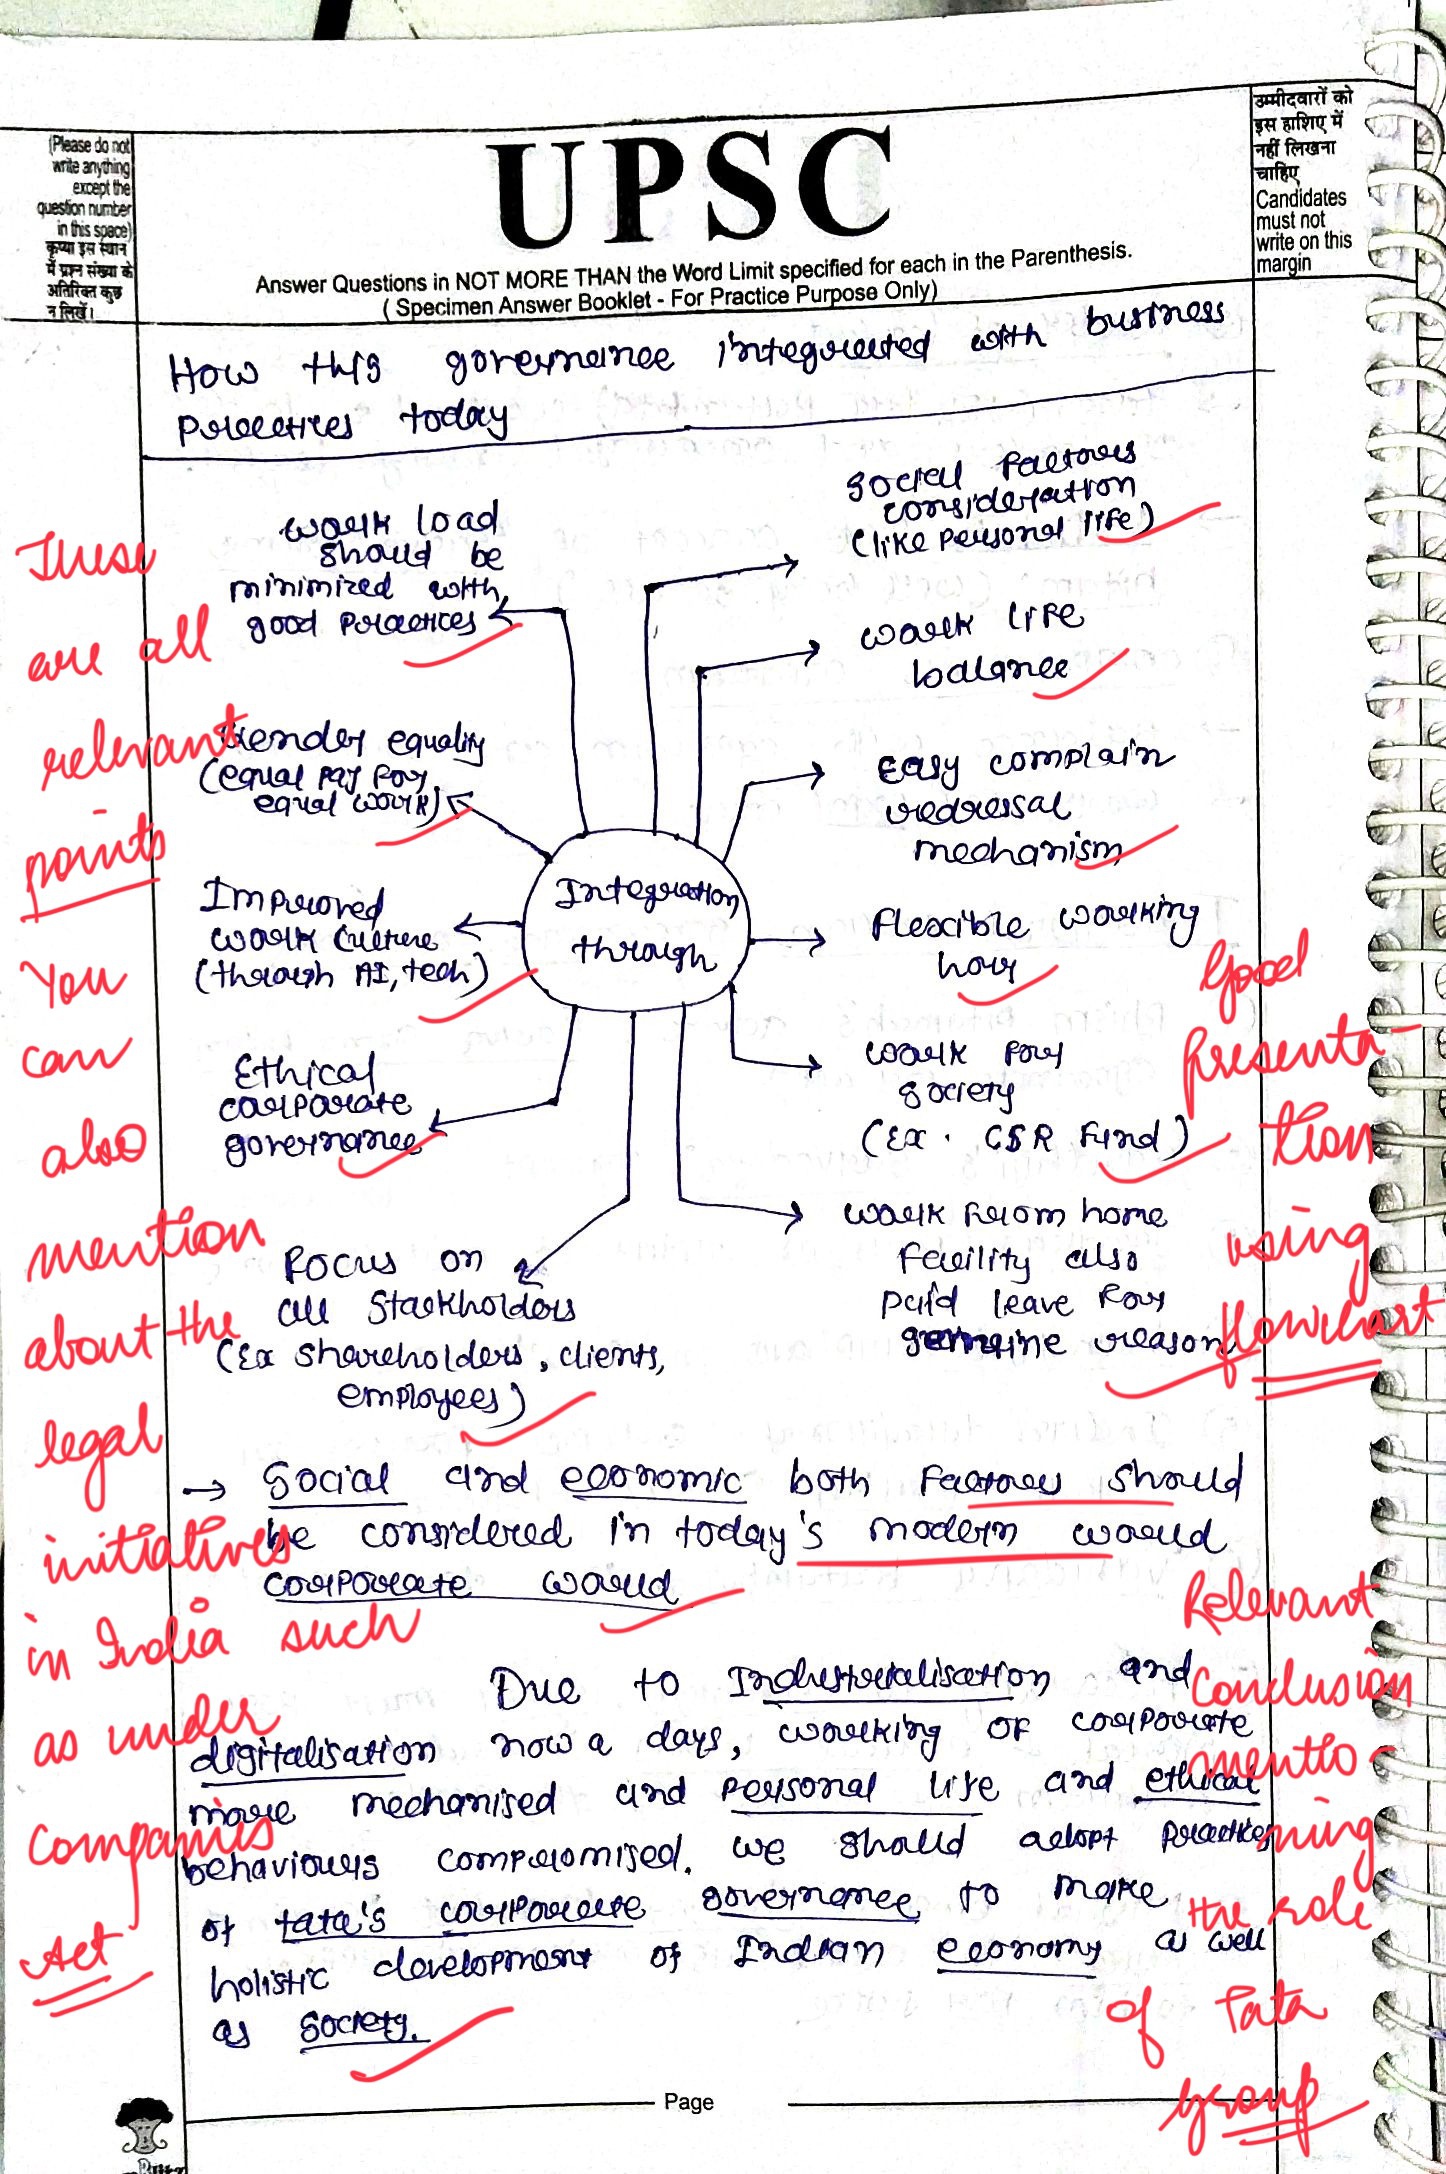 (Please do not
write anything
except the
question number
in this space)
कृप्या इस स्थान
में प्रश्न संख्या के
अतिरिक्त कुछ
न लिखें।
UPSC
Answer Questions in NOT MORE THAN the Word Limit specified for each in the Parenthesis.
( Specimen Answer Booklet - For Practice Purpose Only)
उम्मीदवारों को
इस हाशिए में
नहीं लिखना
चाहिए
Candidates
must not
write on this
margin
How this governance integrated with business
Practices today
work load
should be
minimized with
good Practices
Gender equality
(equal pay for
equal work)
Improved
work culture
(through AI, tech)
Ethical
corporate
governance
Focus on
all Stackholders
(Ex shareholders, clients,
employees)
Integration
through
Social factors
consideration
(like Personal life)
work life
balance
Easy complain
redressal
mechanism
Flexible working
hour
work for
society
(Ex. CSR Fund)
work from home
facility also
paid leave for
genuine reason
→ Social and economic both factors should
be considered in today's modern world
corporate world
Due to Industrialisation and
digitalisation now a days, working of corporate
more mechanised and personal life and ethical
behaviours compromised. we should adopt practices
of tata's corporate governance to make
holistic development of Indian economy as well
as society.
These
are all
relevant
points
You
can
also
mention
about the
legal
initiatives
in India such
as under
Companies
Act
Good
Presenta-
tion
using
flowchart
Relevant
Conclusion
mentio-
ning
the role
of Tata
group
Page